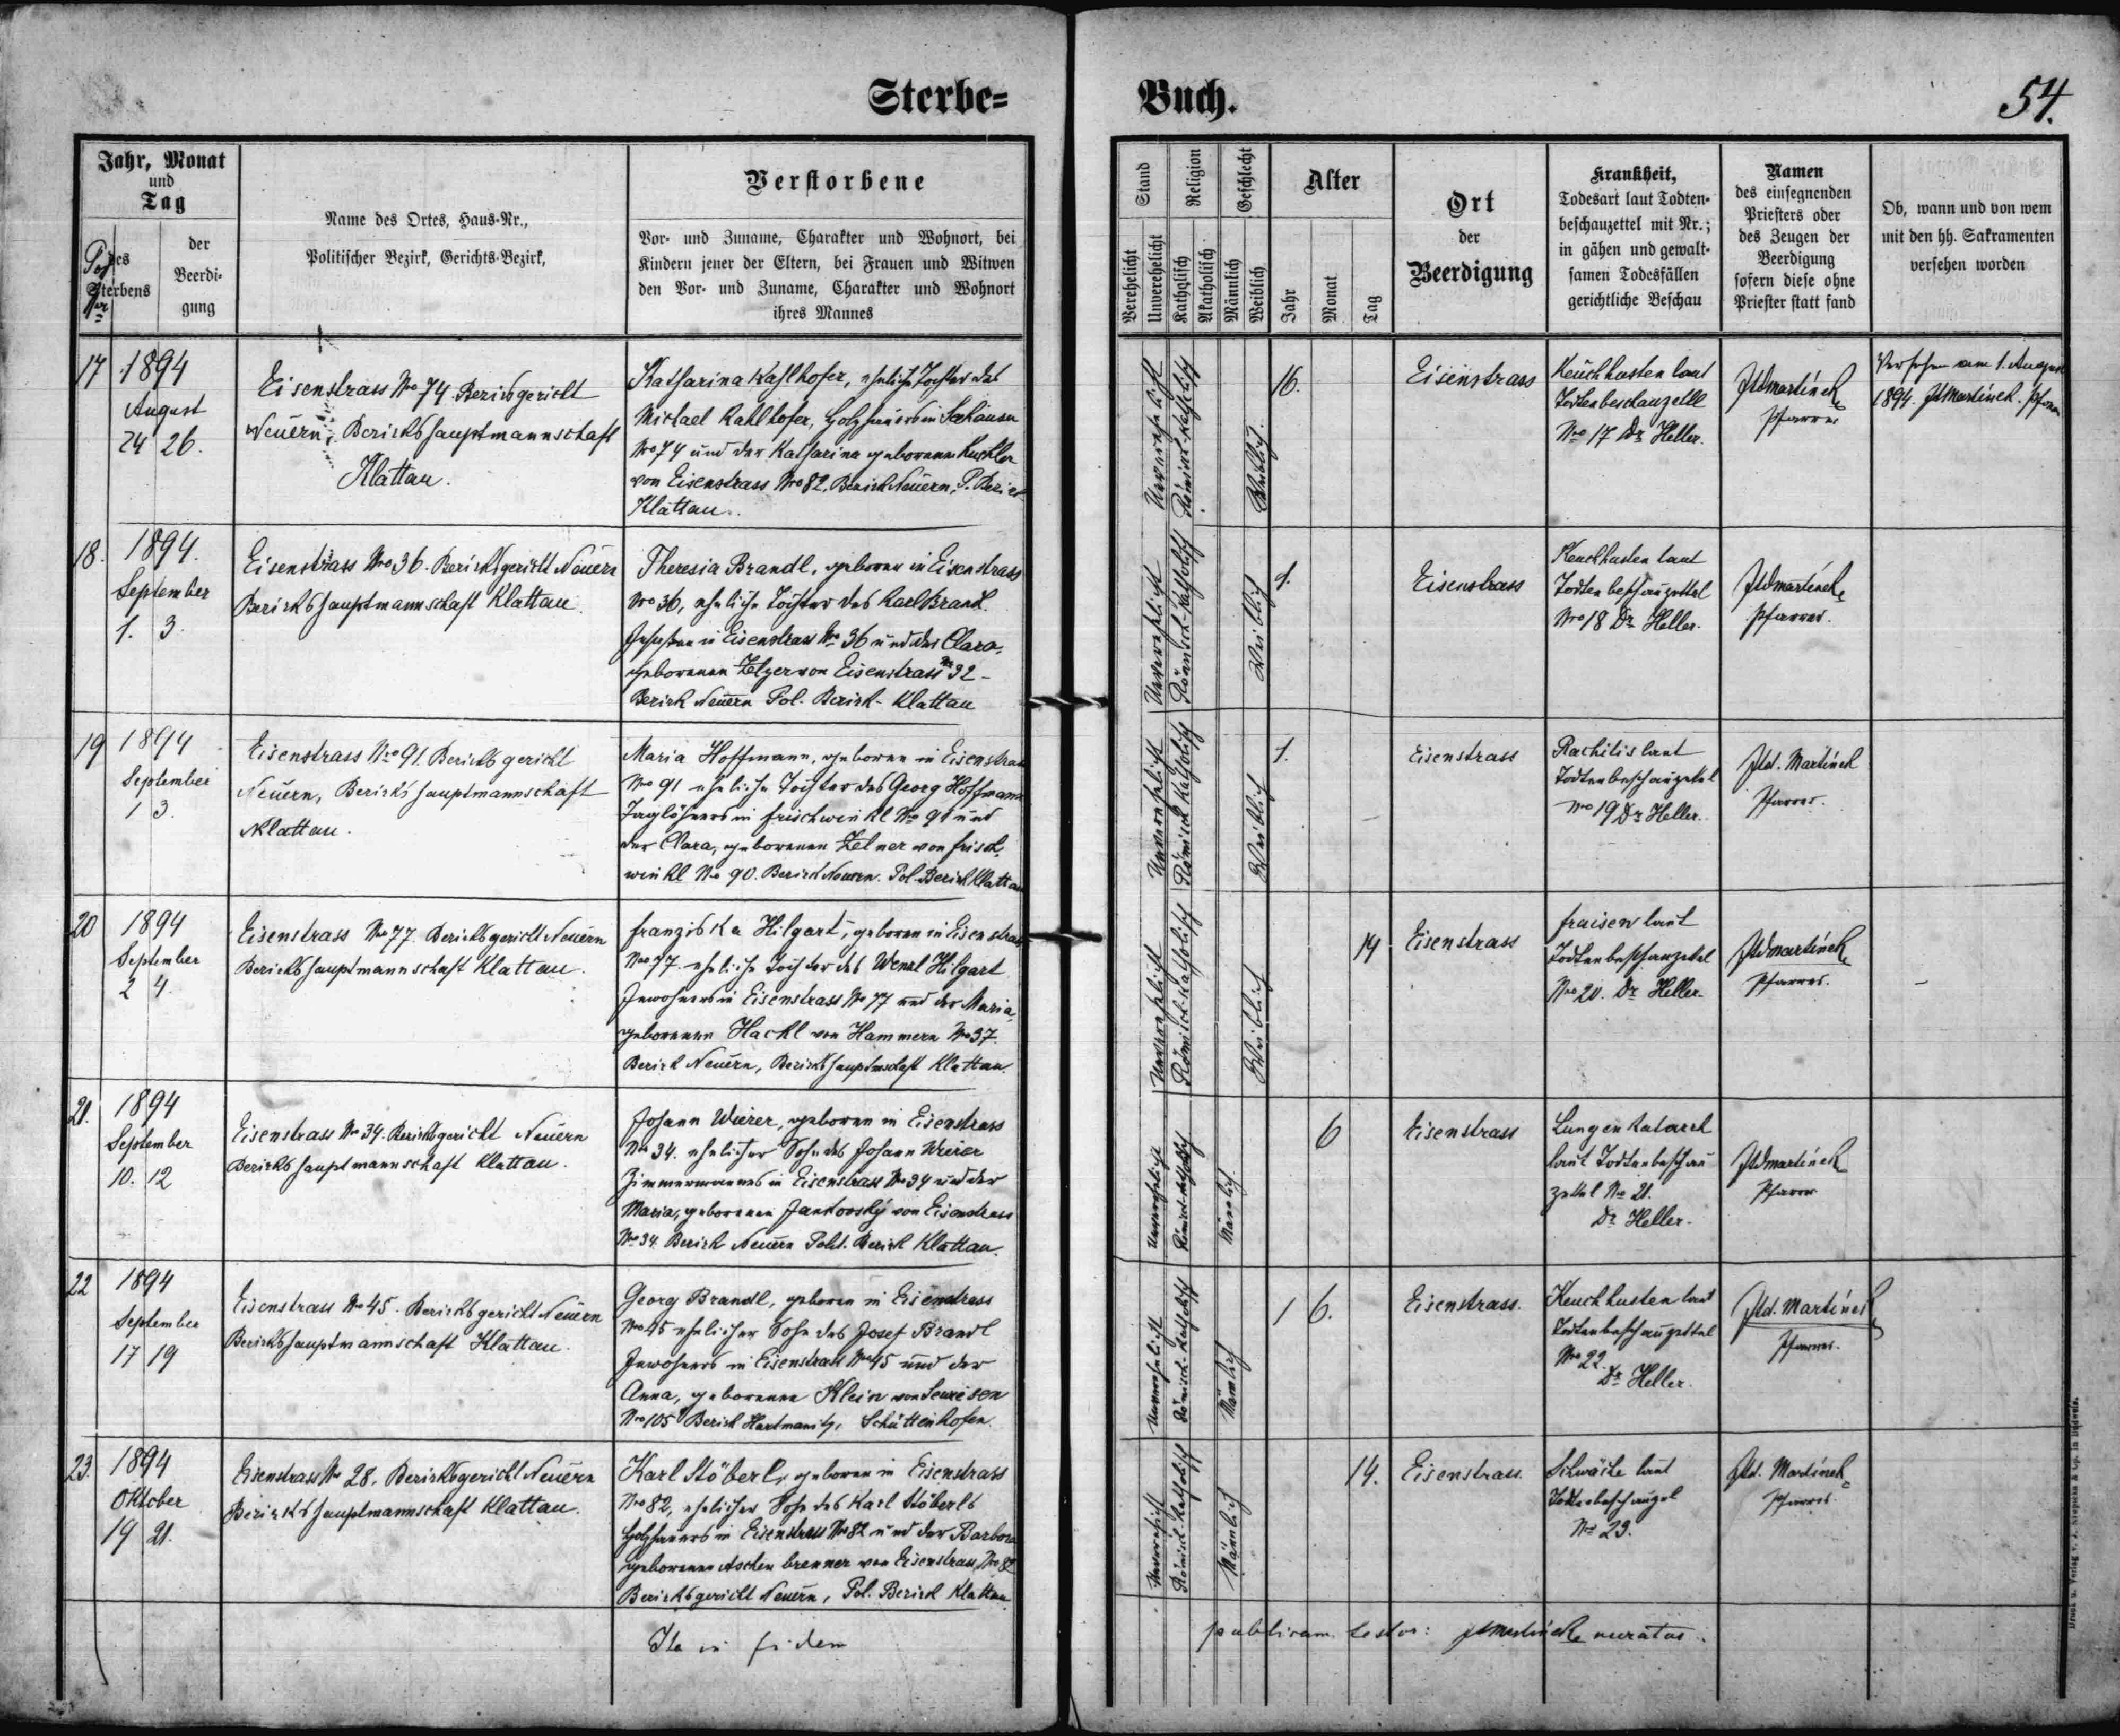 Sterbe=
Buch.
54.
Jahr, Monat
und
Tag
Pos
Nr
des
Sterbens
der
Beerdi-
gung
Name des Ortes, Haus-Nr.,
Politischer Bezirk, Gerichts-Bezirk,
Verstorbene
Vor- und Zuname, Charakter und Wohnort, bei
Kindern jener der Eltern, bei Frauen und Witwen
den Vor- und Zuname, Charakter und Wohnort
ihres Mannes
Stand
Verehelicht
Unverehelicht
Religion
Katholisch
Akatholisch
Geschlecht
Männlich
Weiblich
Alter
Jahr
Monat
Tag
Ort
der
Beerdigung
Krankheit,
Todesart laut Todten-
beschauzettel mit Nr.;
in gähen und gewalt-
samen Todesfällen
gerichtliche Beschau
Namen
des einsegnenden
Priesters oder
des Zeugen der
Beerdigung
sofern diese ohne
Priester statt fand
Ob, wann und von wem
mit den hh. Sakramenten
versehen worden
17
1894
August
24 26.
Eisenstrass No 74. Bezirksgericht
Neuern, Bezirkshauptmannschaft
Klattau.
Katharina Kahlhofer, eheliche Tochter des
Michael Kahlhofer, Holzhauers in Seehäuser
No 74 und der Katharina geborenen
von Eisenstrass No 82, Bezirk Neuern, P. Bezirk
Klattau.
Unverehelicht
Römisch-katholisch
Weiblich.
16.
Eisenstrass
Keuchhusten laut
Todtenbeschauzettl
No 17 Dr Heller.
Martinek
Pfarrer
Versehen am 1. August
1894. Martinek. Pfarrer
18.
1894.
September
1. 3.
Eisenstrass No 36. Bezirksgericht Neuern
Bezirkshauptmannschaft Klattau.
Theresia Brandl, geboren in Eisenstrass
No 36, eheliche Tochter des Karl Brandl.
in Eisenstrass No 36 und der Clara,
geborenen Zelzer von Eisenstrass No 32 -
Bezirk Neuern Pol. Bezirk - Klattau
Unverehelicht
Römisch-katholisch
Weiblich
1.
Eisenstrass
Keuchhusten laut
Todtenbeschauzettel
No 18 Dr Heller.
Martinek
Pfarrer.
19
1894
September
1 3.
Eisenstrass No 91. Bezirksgericht
Neuern, Bezirkshauptmannschaft
Klattau.
Maria Hoffmann, geboren in Eisenstrass
No 91 eheliche Tochter des Georg Hoffmann
Taglöhners in Frischwinkl No 91 und
der Clara, geborenen Zelner von Frisch,
winkl No 90. Bezirk Neuern. Pol. Bezirk Klattau
Unverehelicht
Römisch katholisch
Weiblich
1.
Eisenstrass
Rachitis laut
Todtenbeschauzettel
No 19 Dr Heller.
Martinek
Pfarrer.
20
1894
September
2 4.
Eisenstrass No 77. Bezirksgericht Neuern
Bezirkshauptmannschaft Klattau.
Franziska Hilgart, geboren in Eisenstrass
No 77. eheliche Tochter des Wenzl Hilgart
Inwohners in Eisenstrass No 77 und der Maria,
geborenen Hackl von Hammern No 37.
Bezirk Neuern, Bezirkshauptmschaft Klattau.
Unverehelicht
Römisch-katholisch
Weiblich
14
Eisenstrass
Fraisen laut
Todtenbeschauzettel
No 20. Dr Heller.
Martinek
Pfarrer.
21.
1894
September
10. 12
Eisenstrass No 34. Bezirksgericht Neuern
Bezirkshauptmannschaft Klattau.
Johann Wierer, geboren in Eisenstrass
No 34. ehelicher Sohn des Johann Wierer
Zimmermannes in Eisenstrass No 34 und der
Maria, geborenen Jankovský von Eisenstrass
No 34. Bezirk Neuern Polit. Bezirk Klattau.
Unverehelicht
Römisch-katholisch
Männlich.
6
Eisenstrass
Lungenkatarrh
laut Todtenbeschau
zettel No 21.
Dr Heller.
Martinek
Pfarrer
22
1894
September
17 19
Eisenstrass No 45. Bezirksgericht Neuern
Bezirkshauptmannschaft Klattau.
Georg Brandl, geboren in Eisenstrass
No 45 ehelicher Sohn des Josef Brandl
Inwohners in Eisenstrass No 45 und der
Anna, geborenen Klein von Seewiesen
No 105 Bezirk Hartmanitz, Schüttenhofen.
Unverehelicht
Römisch-katholisch
Männlich
1 6.
Eisenstrass.
Keuchhusten laut
Todtenbeschauzettel
No 22.
Dr Heller.
Martinek
Pfarrer.
23.
1894
Oktober
19 21.
Eisenstrass No 28. Bezirksgericht Neuern
Bezirkshauptmannschaft Klattau.
Karl Stöberl, geboren in Eisenstrass
No 82, ehelicher Sohn des Karl Stöberls
Holzhauers in Eisenstrass No 82 und der Barbara
geborenen Aschenbrenner von Eisenstrass No 82
Bezirksgericht Neuern, Pol. Bezirk Klattau.
Unverehelicht
Römisch-katholisch
Männlich
14.
Eisenstrass.
Schwäche laut
No 23.
Martinek
Pfarrer.
Ita in fidem
publicam testor: Martinek curatus.